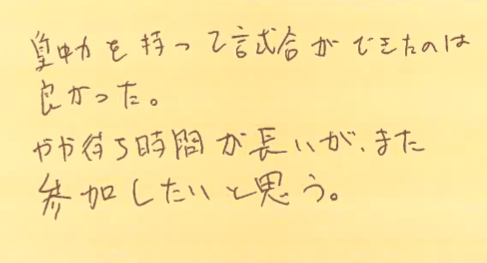 集中力を持って試合ができたのは
良かった。
やや待ち時間が長いが、また
参加したいと思う。